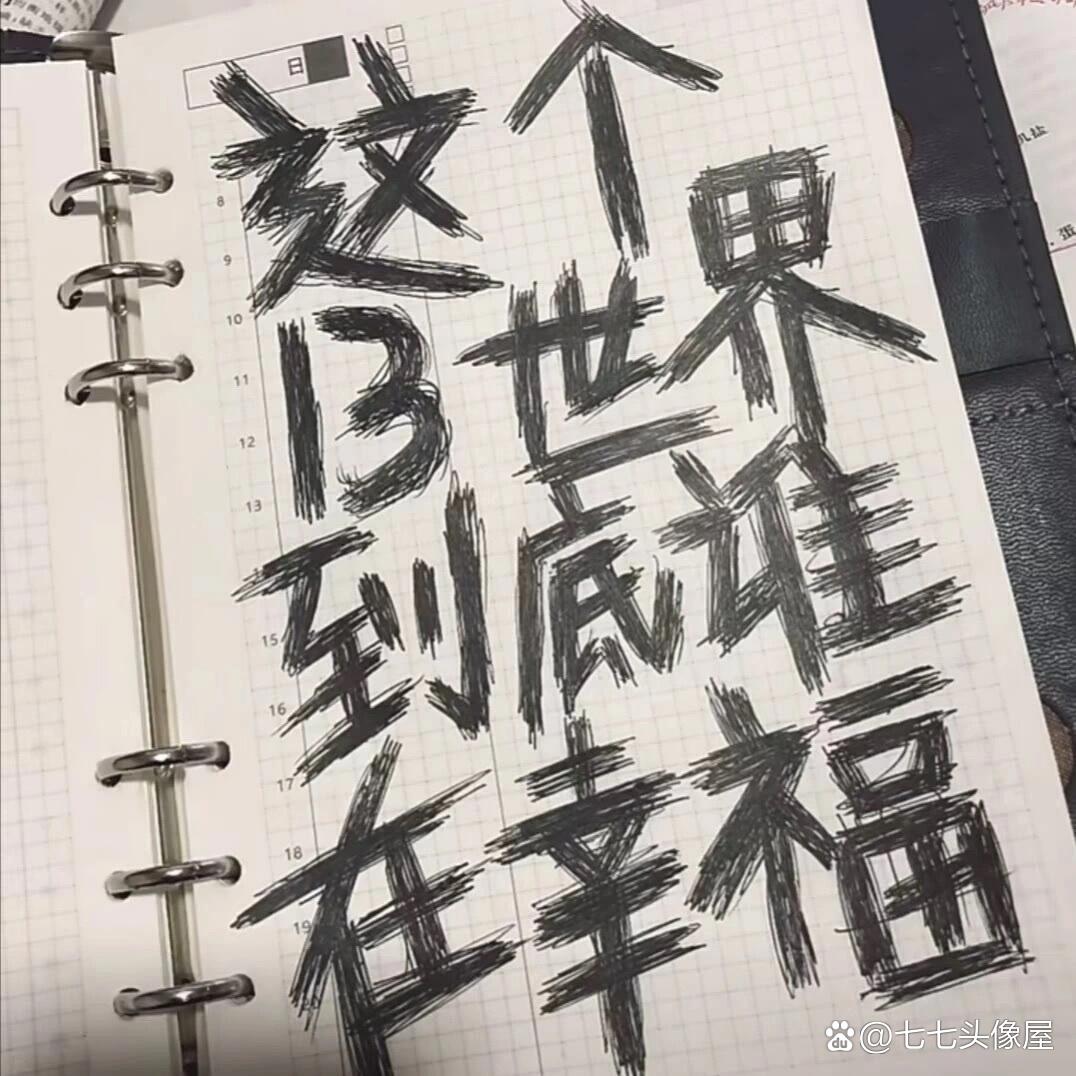 日
这个
13世界
到底谁
在幸福
8
9
10
11
12
13
15
16
17
18
19
du @七七头像屋